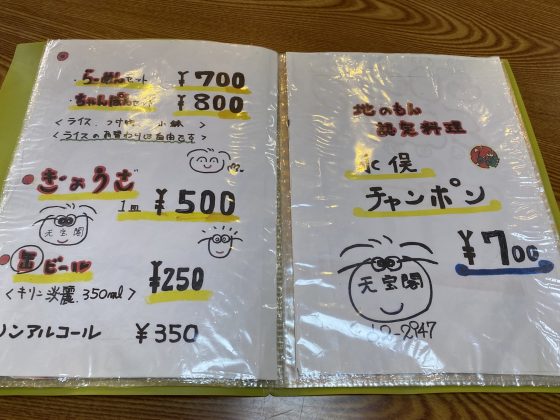 らーめんセット ¥700
ちゃんぽんセット ¥800
<ライス、つけもの、小鉢>
<ライスのお替わりは自由です>
ぎょうざ
1皿 ¥500
天宝閣
缶ビール ¥250
<キリン淡麗.350ml>
ノンアルコール ¥350
地のもん
認定料理
水俣
チャンポン
¥700
天宝閣
62-2947